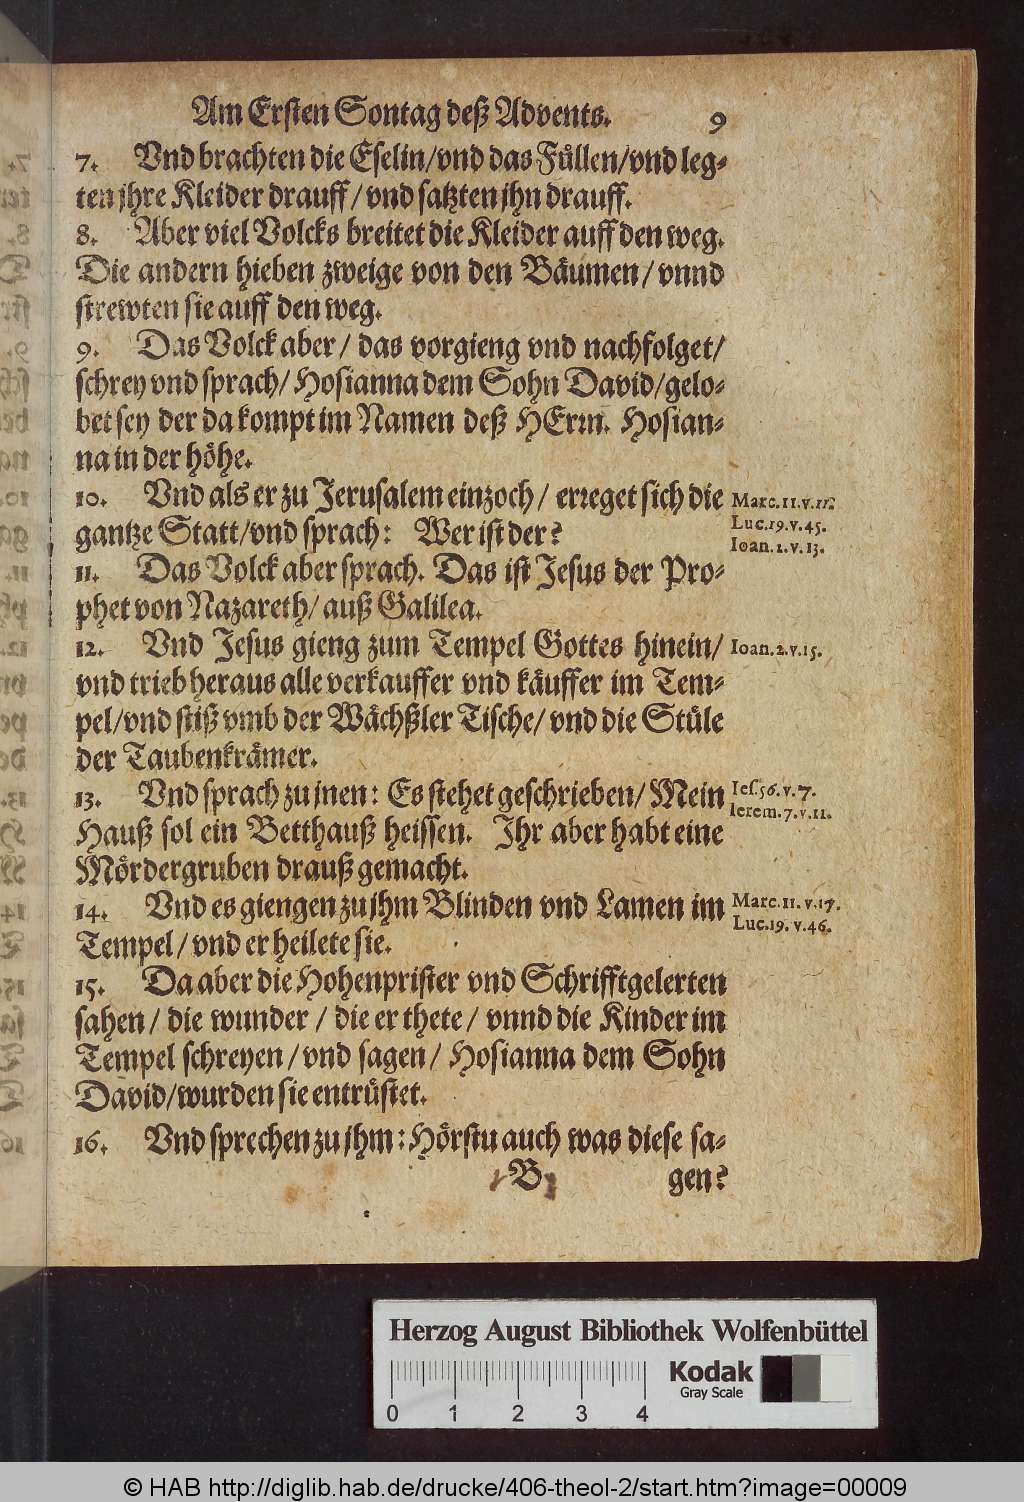 Am Ersten Sontag deß Advents. 9
7. Vnd brachten die Eselin/vnd das Fůllen/vnd leg-
ten jhre Kleider drauff/vnd satzten jhn drauff.
8. Aber viel Volcks breitet die Kleider auff den weg.
Die andern hieben zweige von den Bäumen/vnnd
strewten sie auff den weg.
9. Das Volck aber/ das vorgieng vnd nachfolget/
schrey vnd sprach/ Hosianna dem Sohn David/gelo-
bet sey der da kompt im Namen deß HErrn. Hosian-
na in der höhe.
10. Vnd als er zu Jerusalem einzoch/ erreget sich die
Marc.11.v.11.
gantze Statt/vnd sprach: Wer ist der?
Luc.19.v.45.
Ioan.2.v.13.
11. Das Volck aber sprach. Das ist Jesus der Pro-
phet von Nazareth/ auß Galilea.
12. Vnd Jesus gieng zum Tempel Gottes hinein/
Ioan.2.v.15.
vnd trieb heraus alle verkauffer vnd käuffer im Tem-
pel/vnd stiß vmb der Wächßler Tische/ vnd die Stůle
der Taubenkrämer.
13. Vnd sprach zu jnen: Es stehet geschrieben/ Mein
Ies.56.v.7.
Ierem.7.v.11.
Hauß sol ein Betthauß heissen. Ihr aber habt eine
Mördergruben drauß gemacht.
14. Vnd es giengen zu jhm Blinden vnd Lamen im
Marc.11.v.17.
Luc.19.v.46.
Tempel/ vnd er heilete sie.
15. Da aber die Hohenprister vnd Schrifftgelerten
sahen/ die wunder/ die er thete/ vnnd die Kinder im
Tempel schreyen/vnd sagen/ Hosianna dem Sohn
David/wurden sie entrůstet.
16. Vnd sprechen zu jhm: Hörstu auch was diese sa-
B gen?
Herzog August Bibliothek Wolfenbüttel
Kodak
Gray Scale
0 1 2 3 4
© HAB http://diglib.hab.de/drucke/406-theol-2/start.htm?image=00009